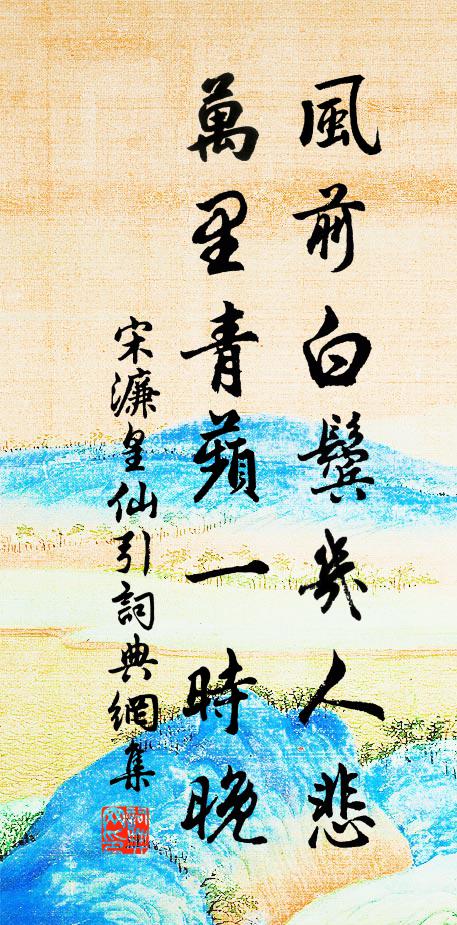 風前白鬢幾人悲
萬里青蘋一時晚
宋濂皇仙引詞典網集